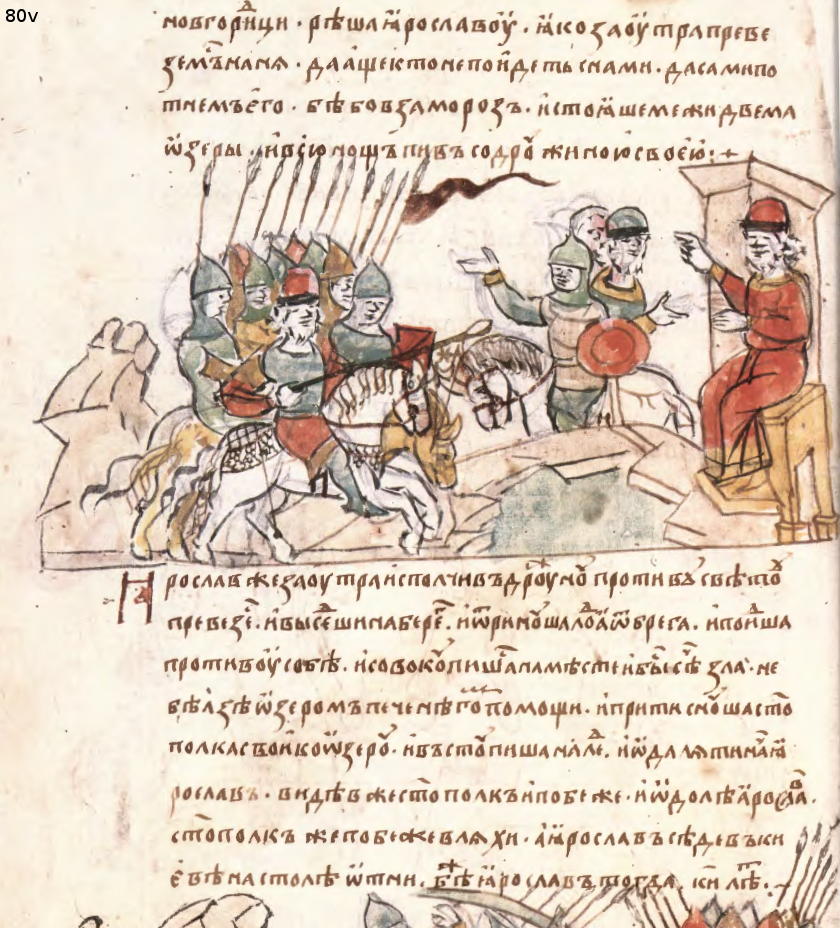 80v
новгоро҃дци · рѣша ꙗрославоу · ꙗко заоутра преве
земъ на нѧ · да аще кто не поидеть с нами · да сами по
тнемъ его · бѣ бо в замороз · и стоꙗше межи двема
ѡзеры · и всю нощъ пивъ с дрꙋжиною своею :+
Ꙗрослав же заоутра исполчивъ дроуⷤноу противоу свѣтоу
превезе · и высѣдши на бере · и ѿриноуша лодьꙗ ѿ брега · и поидоша
противоу собѣ · и совокоупишасѧ на местеи быⷭ сѣча зла · не
бѣ лзѣ ѡзеромъ печенѣгом помощи · и притиснуша сто
полка с вои ко ѡзероу · и въстоупиша на лед · и ѡдалѧти нача ꙗ
рославъ · видѣв же стополкъ и побеже · и ѡдолѣ ꙗрослав ·
стополкъ же побеже в лѧхи · а ꙗрославъ сѣде въ ки
еве на столѣ ѿтни · бѣ ꙗрославъ тогда · ки лѣ :~